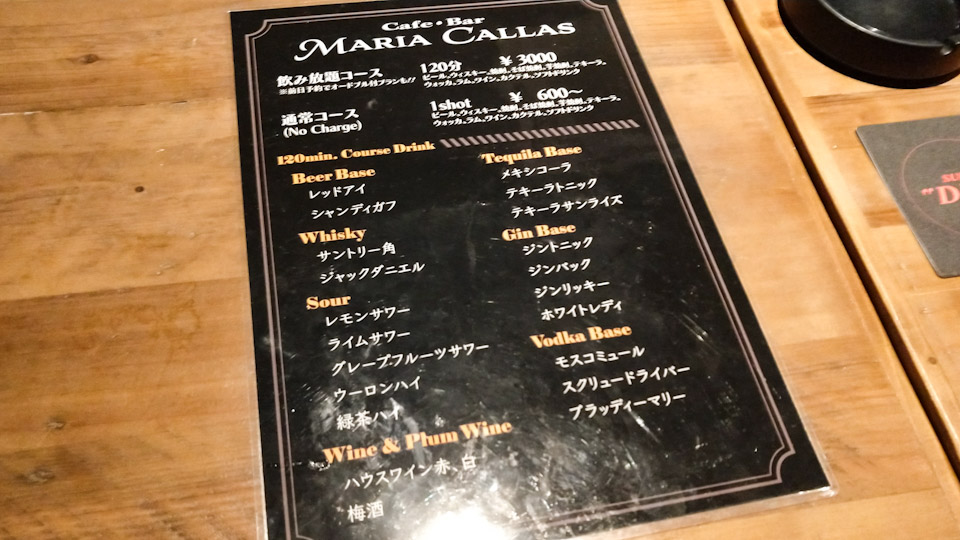 Cafe・Bar
MARIA CALLAS
飲み放題コース 120分 ¥ 3000
※前日予約でオードブル付プランも!!
ビール、ウィスキー、焼酎、そば焼酎、芋焼酎、テキーラ、
ウォッカ、ラム、ワイン、カクテル、ソフトドリンク
通常コース 1shot ¥ 600〜
(No Charge)
ビール、ウィスキー、焼酎、そば焼酎、芋焼酎、テキーラ、
ウォッカ、ラム、ワイン、カクテル、ソフトドリンク
120min. Course Drink
Beer Base
レッドアイ
シャンディガフ
Whisky
サントリー角
ジャックダニエル
Sour
レモンサワー
ライムサワー
グレープフルーツサワー
ウーロンハイ
緑茶ハイ
Wine & Plum Wine
ハウスワイン赤、白
梅酒
Tequila Base
メキシコーラ
テキーラトニック
テキーラサンライズ
Gin Base
ジントニック
ジンバック
ジンリッキー
ホワイトレディ
Vodka Base
モスコミュール
スクリュードライバー
ブラッディーマリー